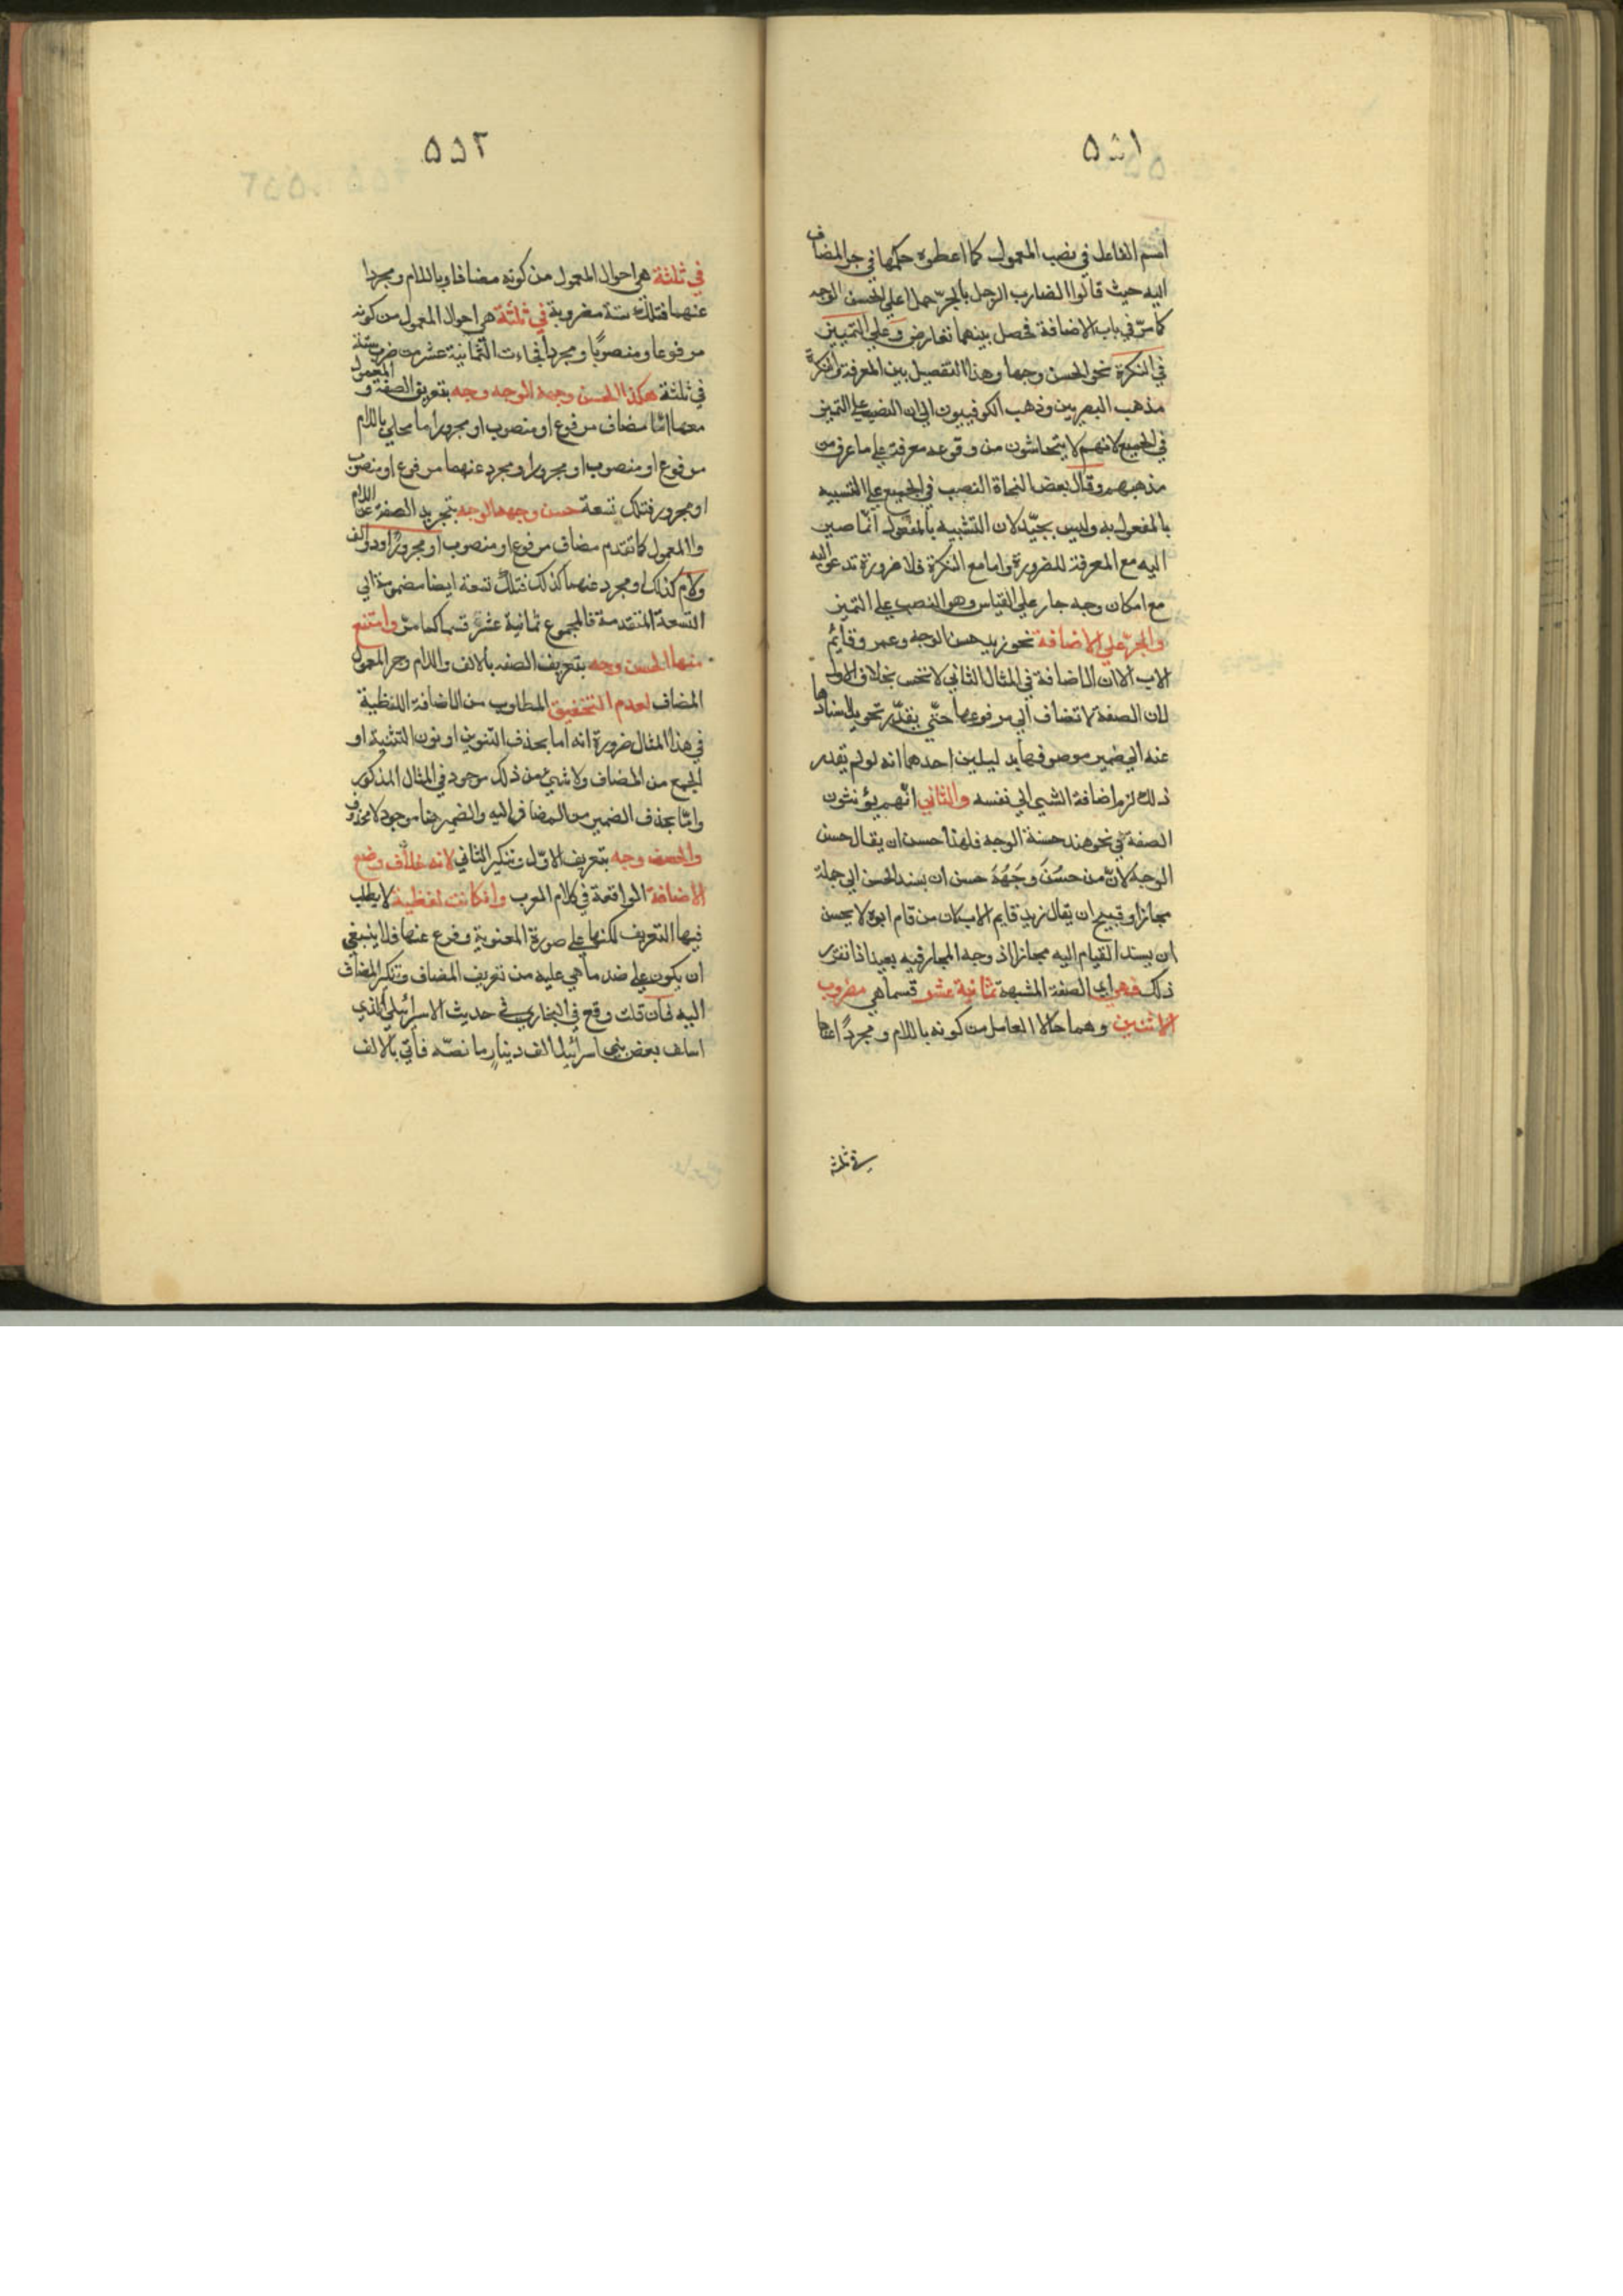 ٥٥١
اسم الفاعل في نصب المعمول كما اعطوه حكمها في جر المضاف
اليه حيث قالوا الضارب الرجل بالجرّ حملا على الحسن الوجه
كما مرّ في باب الاضافة فحصل بينهما تعارض وعلي التمييز
في النكرة نحو الحسن وجها وهذا التفصيل بين المعرفة والنكرة
مذهب البصريين وذهب الكوفييون الي ان النصب علي التميز
في الجميع لانهم لا يتحاشون من وقوعه معرفة علي ما عرف من
مذهبهم وقال بعض النحاة النصب في الجميع علي التشبيه
بالمفعول به وليس بجيّد لان التشبيه بالمفعول انّما صير
اليه مع المعرفة للضرورة واما مع النكرة فلا ضرورة تدعو اليه
مع امكان وجه جار علي القياس وهو النصب علي التميز
والجرّ علي الاضافة نحو زيد حسن الوجه وعمرو قايمُ
الاب الا ان الاضافة في المثال الثاني لا تحسن بخلاف الاول
لان الصفة لا تضاف الي مرفوعها حتّي يقدّر تحويل اسنادها
عنه الي ضمير موصوفها بدليلين احدهما انه لو لم يقدر
ذلك لزم اضافة الشي الي نفسه والثاني انّهم يؤنثون
الصفة في نحو هند حسنة الوجه فلهذا حسن ان يقال حسن
الوجه لانّ من حسُنَ وَجَهُهُ حسن ان يسند الحسن الي جملة
مجازا وقبيح ان يقال زيد قايم الاب لان من قام ابوه لا يحسن
ان يسند القيام اليه مجازا اذ وجه المجاز فيه بعيد اذا تقرر
ذلك فهي اي الصفة المشبهة ثمانية عشر قسما هي مضروب
الاثنين وهما حالا العامل من كونه باللام ومجردًا عنها
في ثلثة
٥٥٢
في ثلثة هي احوال المعمول من كونه مضافا وباللام ومجردا
عنهما فتلك ستة مضروبة في ثلثة هي احوال المعمول من كونه
مرفوعا ومنصوبًا ومجردا فجاءت الثمانية عشر من ضرب ستة
في ثلثة هكذا الحسن وجهه الوجه وجه بتعريف الصفة و المعمول
معها امّا مضاف مرفوع او منصوب او مجرور اما محلي باللام
مرفوع او منصوب او مجرور او مجرد عنهما مرفوع او منصوب
او مجرور فتلك تسعة حسن وجهه الوجه وجه بتجريد الصفة عن اللام
واالمعمول كما تقدم مضاف مرفوع او منصوب او مجرورًا او ذو الف
ولام كذلك او مجرد عنهما كذلك فتلك تسعة ايضا مضمومة الي
التسعة المتقدمة فالمجموع ثمانية عشر قسما كما مرّ وامتنع
منها الحسن وجهه بتعريف الصفه بالالف واللام وجر المعمول
المضاف لعدم التخفيف المطلوب من الاضافة اللفظية
في هذا المثال ضرورة انه اما بحذف التنوين او نون التثنية او
الجمع من المضاف ولا شيئ من ذلك موجود في المثال المذكور
وامّا بحذف الضمير من المضاف اليه والضمير هنا موجود لا محذوف
والحسن وجه بتعريف الاوّل وتنكير الثاني لانه خلاف وضع
الاضافة الواقعة في كلام العرب وان كانت لفظية لا يطلب
فيها التعريف لكنها علي صورة المعنوية وفرع عنها فلا ينبغي
ان يكون علي ضد ما هي عليه من تعريف المضاف وتنكير المضاف
اليه فان قلت وقع في البخاري في حديث الاسرائيلي الذي
اسلف بعض بني اسرائيل الف دينارٍ ما نصّه فاتي بالالف